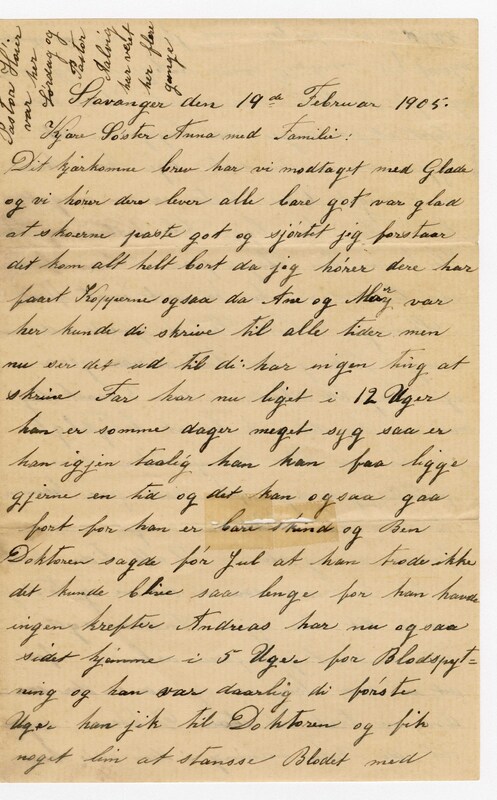 Pastor Høier
var her
Lørdag og
Pastor
Aalvig
her vært
her flere
gange
Stavanger den 19de Februar 1905.
Kjære Søster Anna med Familie:
Dit kjærkomne brev har vi modtaget med Glæde
og vi hører dere lever alle bare got var glad
at skoerne paste got og sjørtet jeg forstaar
det kom alt helt bort da jeg hører dere har
faaet Kopperne ogsaa da Ane og Mary var
her kunde di skrive til alle tider men
nu ser det ud til di har ingen ting at
skrive Far har nu liget i 12 Uger
han er somme dager meget syg saa er
han igjen taalig han kan faa ligge
gjerne en tid og det kan ogsaa gaa
fort for han er bare skind og Ben
Doktoren sagde før Jul at han trode ikke
det kunde blive saa lenge for han havde
ingen krefter Andreas har nu ogsaa
sidet hjemme i 5 Uger for Blodspyt=
ning og han var daarlig di første
Uger han jik til Doktoren og fik
noget lim at stansse Blodet med